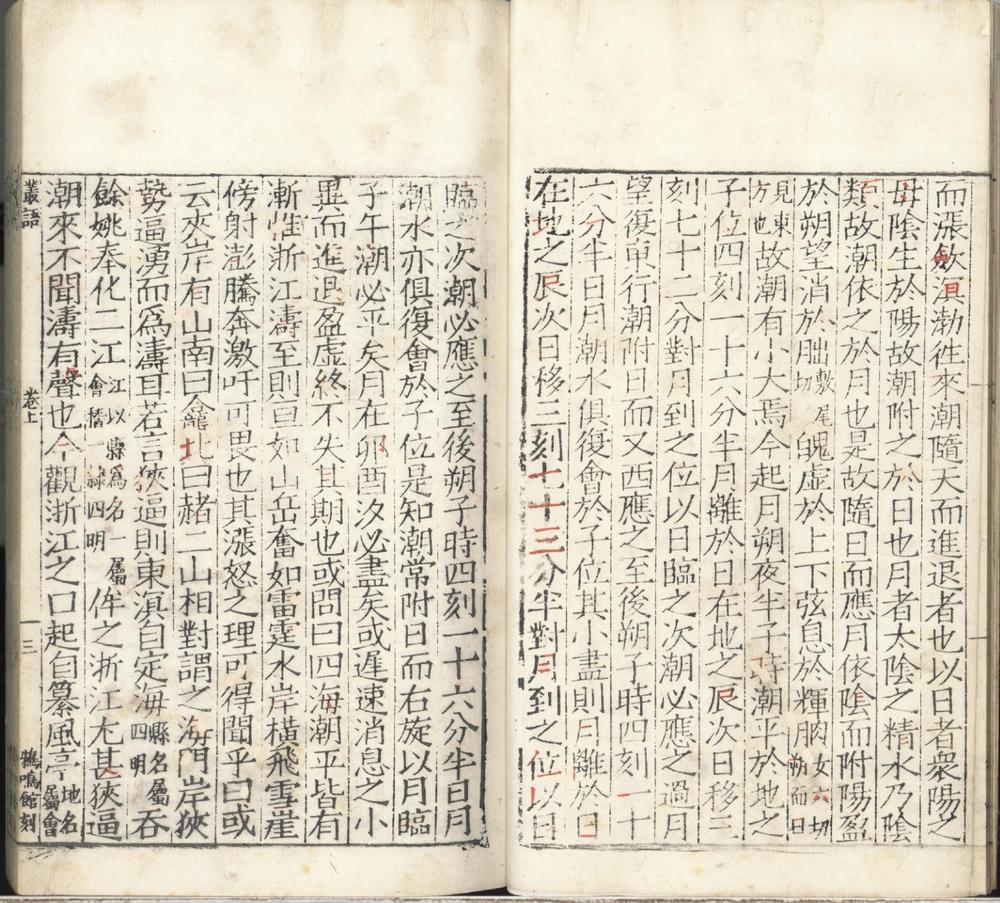 而漲斂溟渤徃來潮隨天而進退者也以日者衆陽之
母陰生於陽故潮附之於日也月者太陰之精水乃陰
類故潮依之於月也是故隨日而應月依陰而附陽盈
於朔望消於朏敷尾切魄虛於上下弦息於輝朒女六切朔而日
見東方也故潮有小大焉今起月朔夜半子時潮平於地之
子位四刻一十六分半月離於日在地之辰次日移三
刻七十二分對月到之位以日臨之次潮必應之過月
望復東行潮附日而又西應之至後朔子時四刻一十
六分半日月潮水俱復會於子位其小盡則月離於日
在地之辰次日移三刻七十三分半對月到之位以日
臨之次潮必應之至後朔子時四刻一十六分半日月
潮水亦俱復會於子位是知潮常附日而右旋以月臨
子午潮必平矣月在卯酉汐必盡矣或遲速消息之小
異而進退盈虛終不失其期也或問曰四海潮平皆有
漸惟浙江濤至則亘如山岳奮如雷霆水岸橫飛雪崖
傍射澎騰奔激吁可畏也其漲怒之理可得聞乎曰或
云夾岸有山南曰龕北曰赭二山相對謂之海門岸狹
勢逼湧而爲濤耳若言狹逼則東溟自定海縣名屬四明吞
餘姚奉化二江江以縣爲名一屬會稽一隷四明侔之浙江尤甚狹逼
潮來不聞濤有聲也今觀浙江之口起自纂風亭地名屬會
叢語 卷上 三 鴉鳴館刻